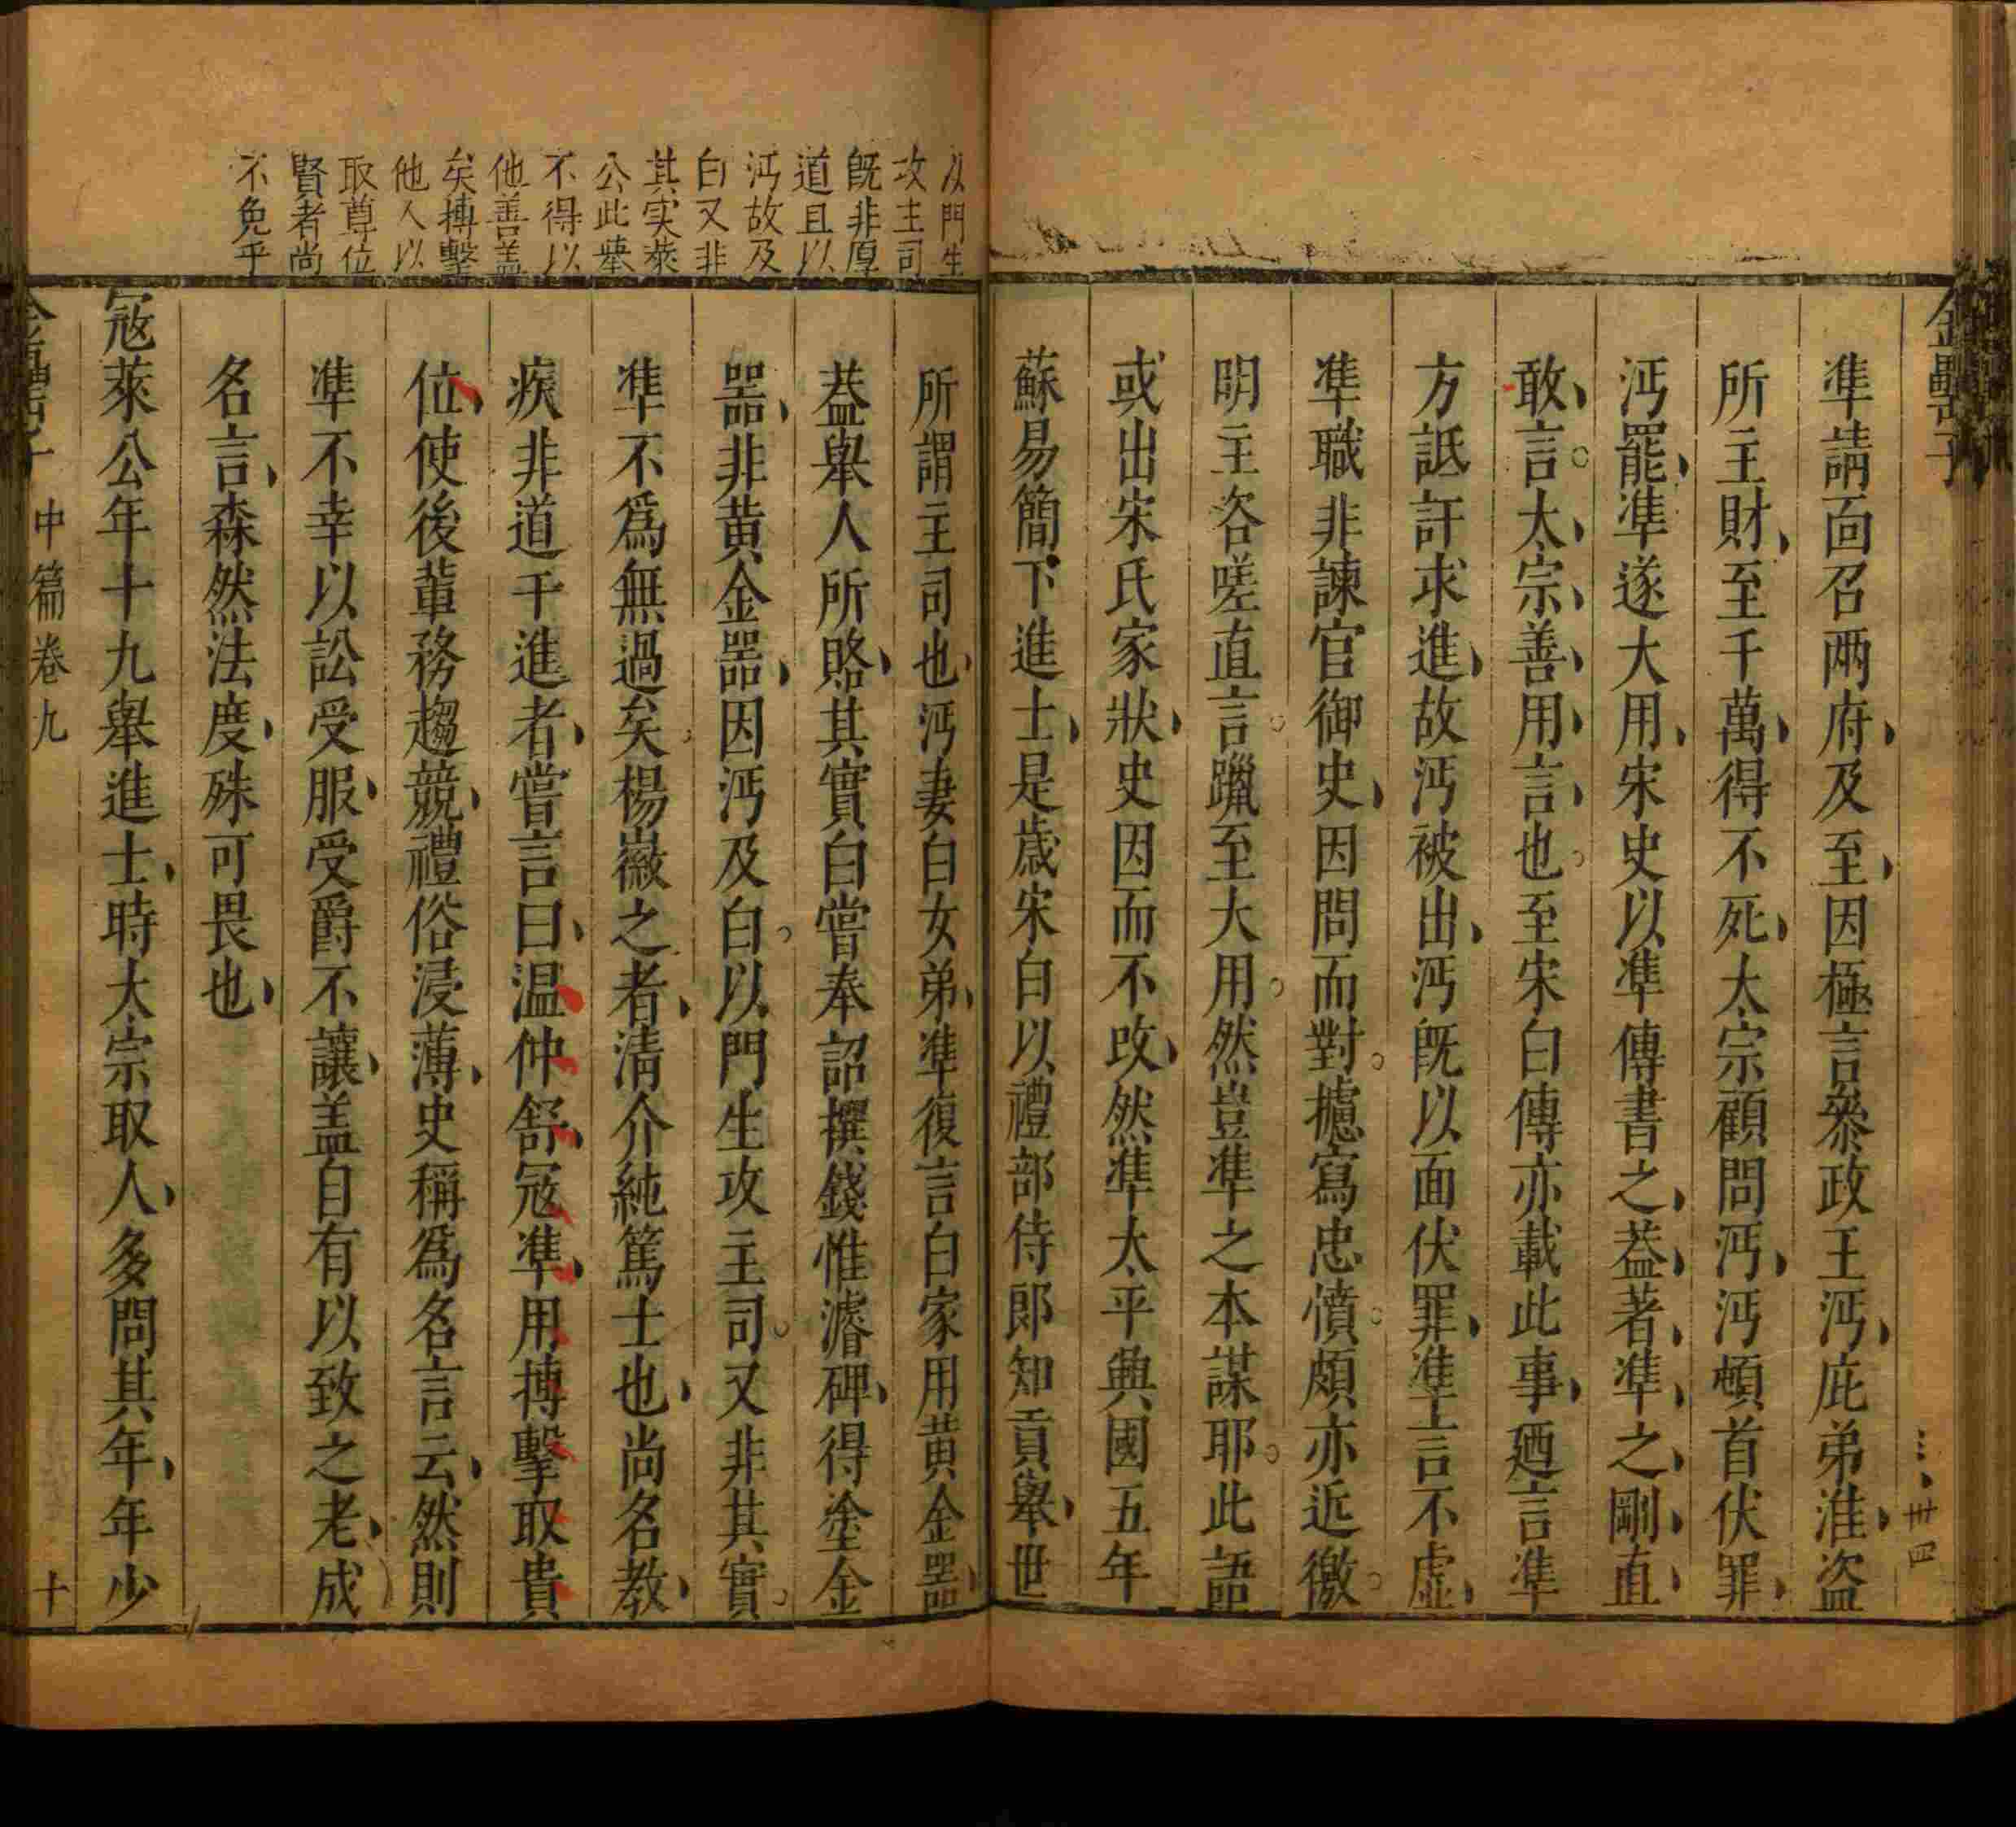 金罍子
準請面召兩府及至因極言叅政王沔庇弟淮盜
所主財至千萬得不死太宗顧問沔沔頓首伏罪
沔罷準遂大用宋史以準傳書之葢著準之剛直
敢言太宗善用言也至宋白傳亦載此事廼言準
方詆訐求進故沔被出沔旣以面伏罪準言不虛
準職非諫官御史因問而對攄寫忠憤頗亦近徼
明主咨嗟直言躐至大用然豈準之本謀耶此語
或出宋氏家狀史因而不攺然準太平興國五年
蘇易簡下進士是歲宋白以禮部侍郎知貢舉世
以門生
攻主司
旣非厚
道且以
沔故及
白又非
其实萊
公此舉
不得以
他善盖
矣搏擊
他人以
取尊位
賢者尚
不免乎
所謂主司也沔妻白女弟準復言白家用黃金器
葢舉人所賂其實白嘗奉詔撰錢惟濬碑得塗金
器非黃金器因沔及白以門生攻主司又非其實
準不爲無過矣楊徽之者清介純篤士也尚名教
疾非道干進者嘗言曰温仲舒冦準用搏擊取貴
位使後輩務趨競禮俗浸薄史稱爲名言云然則
準不幸以訟受服受爵不讓盖自有以致之老成
名言森然法度殊可畏也
冦萊公年十九舉進士時太宗取人多問其年年少
中篇卷九
十